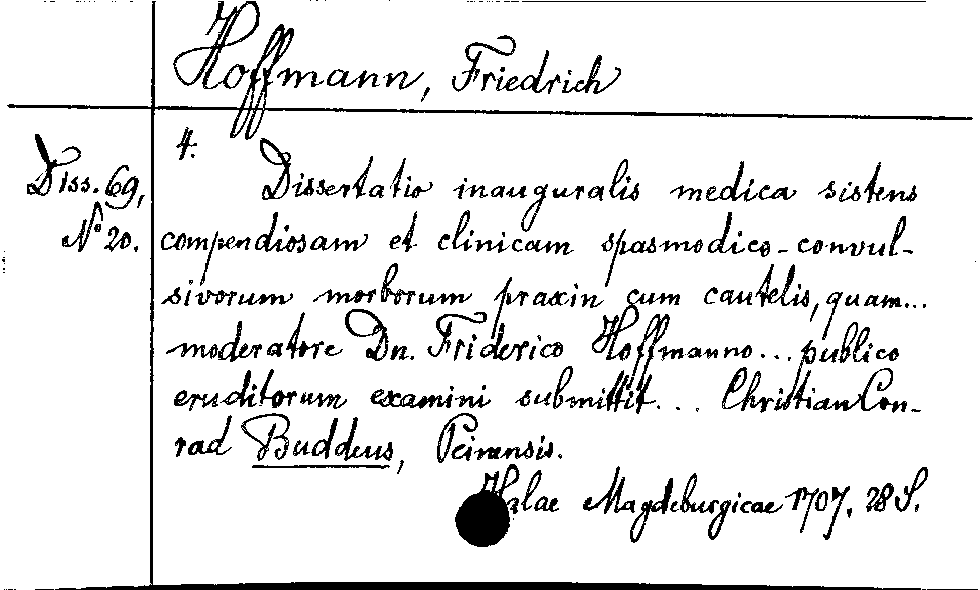 Hoffmann, Friedrich
4.
Diss. 69,
No 20.
Dissertatio inauguralis medica sistens
compendiosam et clinicam spasmodico-convul-
sivorum morborum praxin cum cautelis, quam...
moderatore Dn. Friderico Hoffmanno... publico
eruditorum examini submittit... Christian Con-
rad Buddeus, Peinensis.
Halae Magdeburgicae 1707. 28 S.